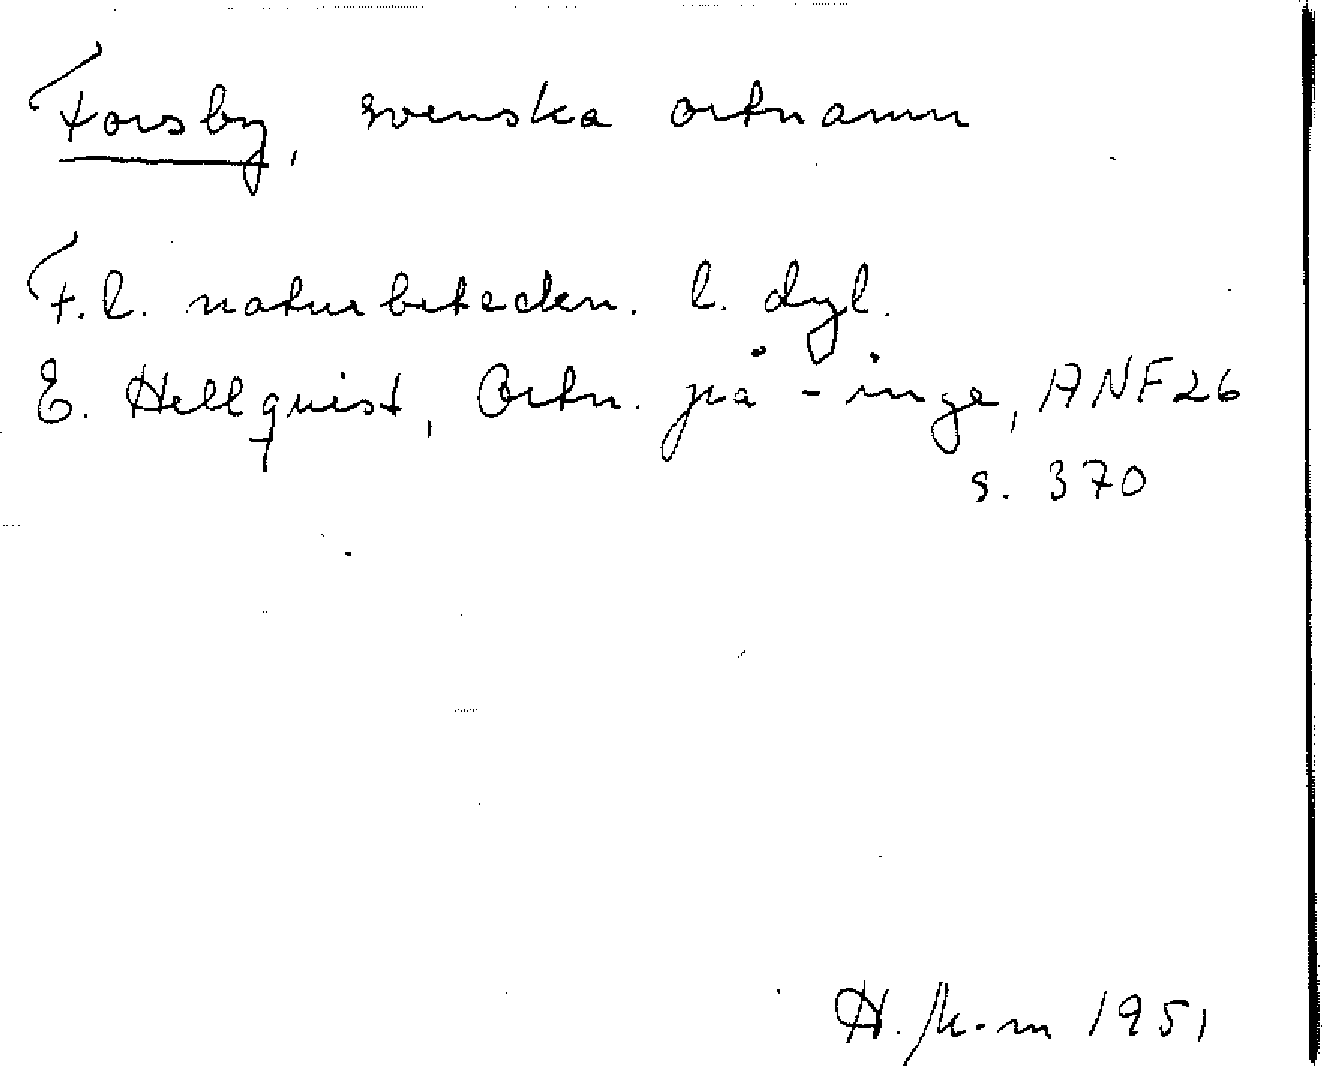 Forsby, svenska ortnamn
F. l. naturbeteckn. l. dyl.
E. Hellquist, Ortn. på -inge, ANF 26
s. 370
1951